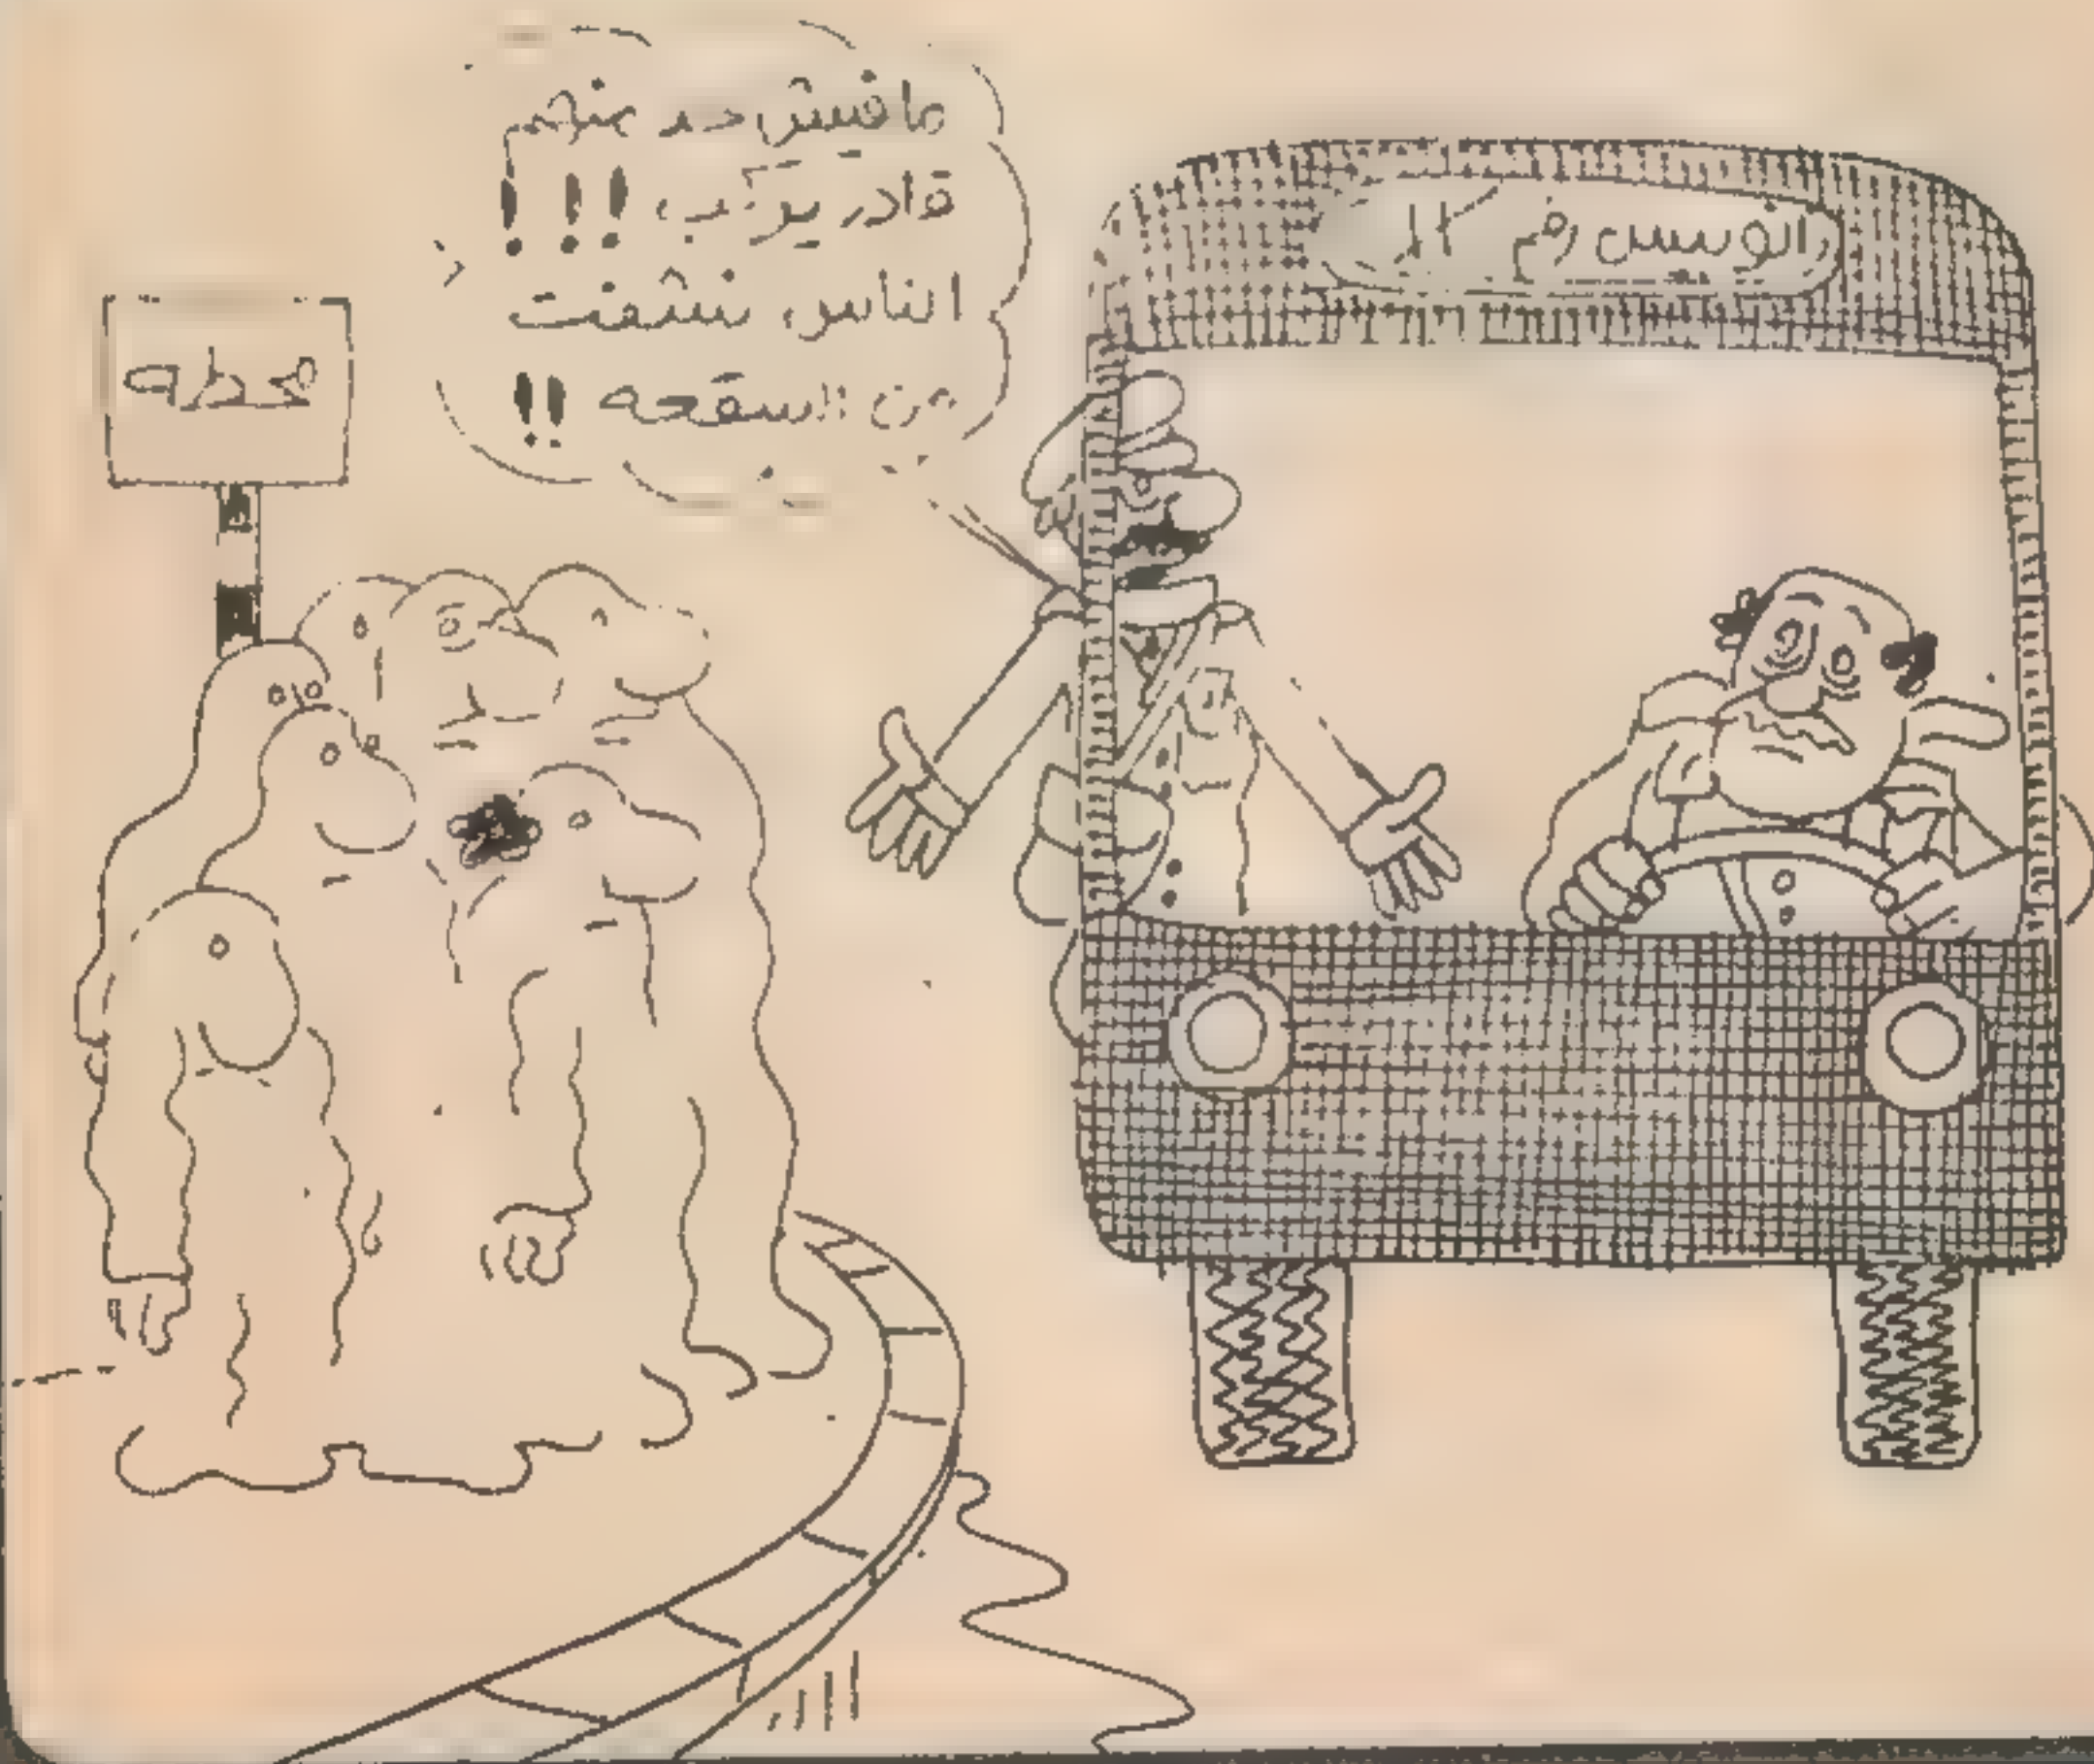 مافيش حد منهم
قادر يركب !!!
الناس نشفت
من السقعه !!
اتوبيس رقم
محطه